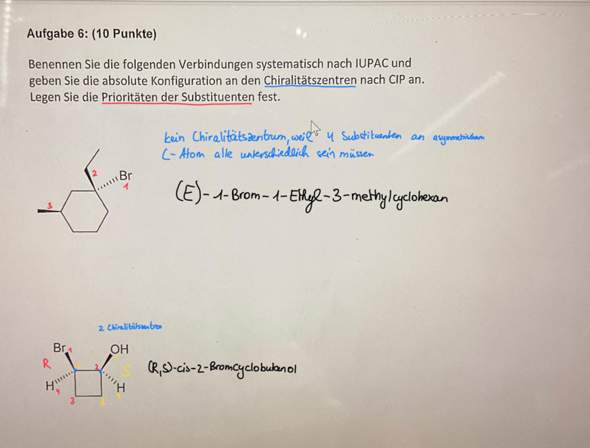 Aufgabe 6: (10 Punkte)
Benennen Sie die folgenden Verbindungen systematisch nach IUPAC und
geben Sie die absolute Konfiguration an den Chiralitätszentren nach CIP an.
Legen Sie die Prioritäten der Substituenten fest.
kein Chiralitätszentrum, weil 4 Substituenten an asymmetrischem
C-Atom alle unterschiedlich sein müssen
2 Br
1
(E)-1-Brom-1-Ethyl-3-methylcyclohexan
3
2 Chiralitätszentren
Br 1 OH
R 2 S
(R,S)-cis-2-Bromcyclobutanol
H 4 H
3